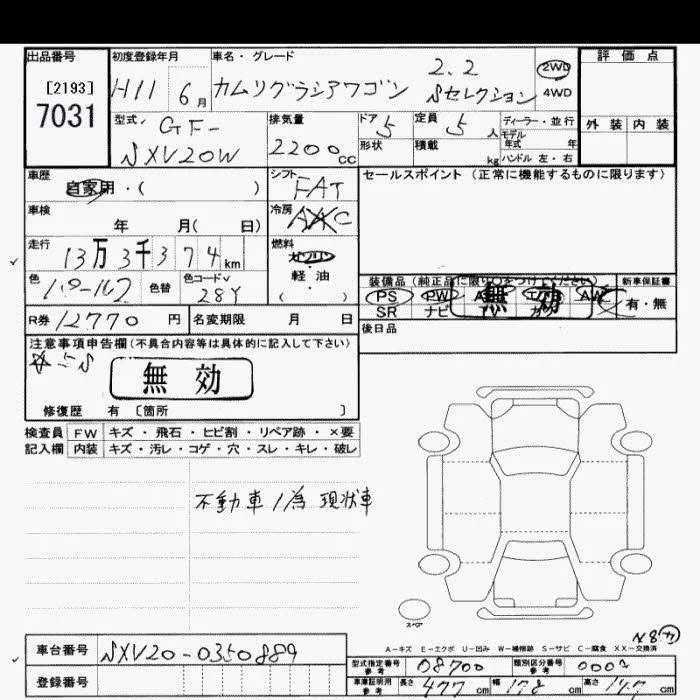 出品番号
[2193]
7031
初度登録年月
H11 6月
車名・グレード
カムリグラシアワゴン 2.2 Sセレクション
2WD
4WD
評価点
外装 内装
型式
GF-
SXV20W
排気量
2200cc
ドア 5
形状
定員 5人
積載 kg
ディーラー・並行
モデル年式 年
ハンドル 左・右
車歴
自家用・( )
シフト
FAT
セールスポイント(正常に機能するものに限ります)
車検
年 月( 日)
冷房
走行
13万3千374km
燃料
ガソリン
軽油
( )
色
色替
色コード
28Y
装備品(純正品に限り○をつけてください)
PS PW エアB AW
SR ナビ TV カワ
無効
新車保証書
有・無
R券 12770円
名変期限 月 日
後日品
注意事項申告欄(不具合内容等は具体的に記入して下さい)
無効
修復歴 有 〔箇所 〕
検査員 FW キズ・飛石・ヒビ割・リペア跡・×要
記入欄 内装 キズ・汚レ・コゲ・穴・スレ・キレ・破レ
不動車ノ為 現状車
スペア
A-キズ E-エクボ U-凹み W-補修跡 S-サビ C-腐食 XX-交換済
車台番号
SXV20-0350889
登録番号
型式指定番号 参考 08700
類別区分番号 参考
車庫証明用 参考 長さ 477cm 幅 178cm 高さ 147cm